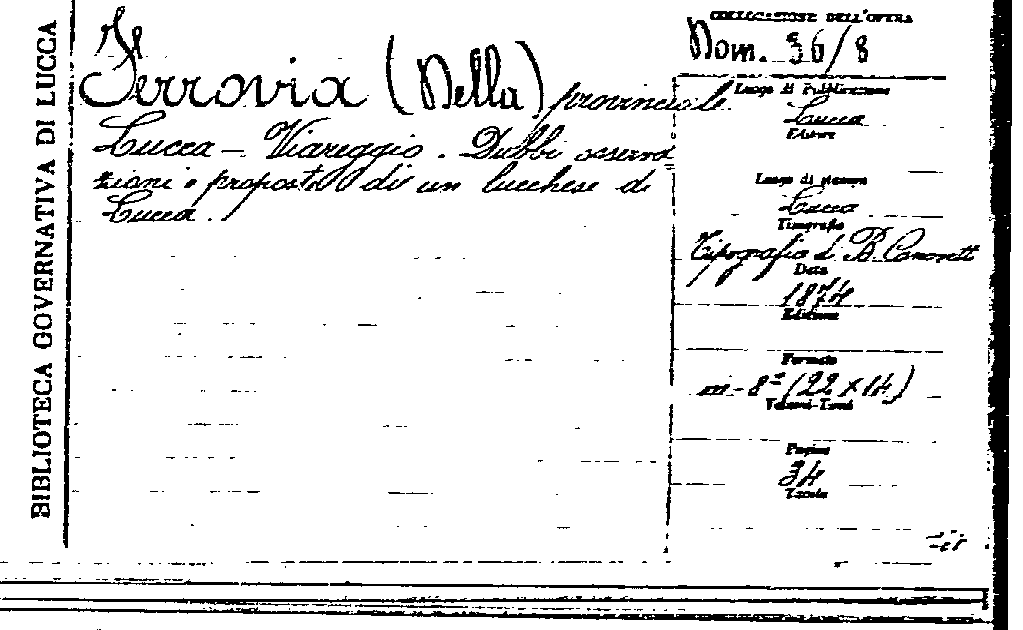 BIBLIOTECA GOVERNATIVA DI LUCCA
Ferrovia (Della) provinciale
Lucca - Viareggio. Dubbi osserva
zioni e proposte di un lucchese di
Lucca.
COLLOCAZIONE DELL'OPERA
Nom. 36/8
Luogo di Pubblicazione
Lucca
Editore
Luogo di stampa
Lucca
Tipografia
Tipografia di B. Canovetti
Data
1874
Edizione
Formato
in-8º (22 x 14)
Volumi-Tomi
Pagine
34
Tavole